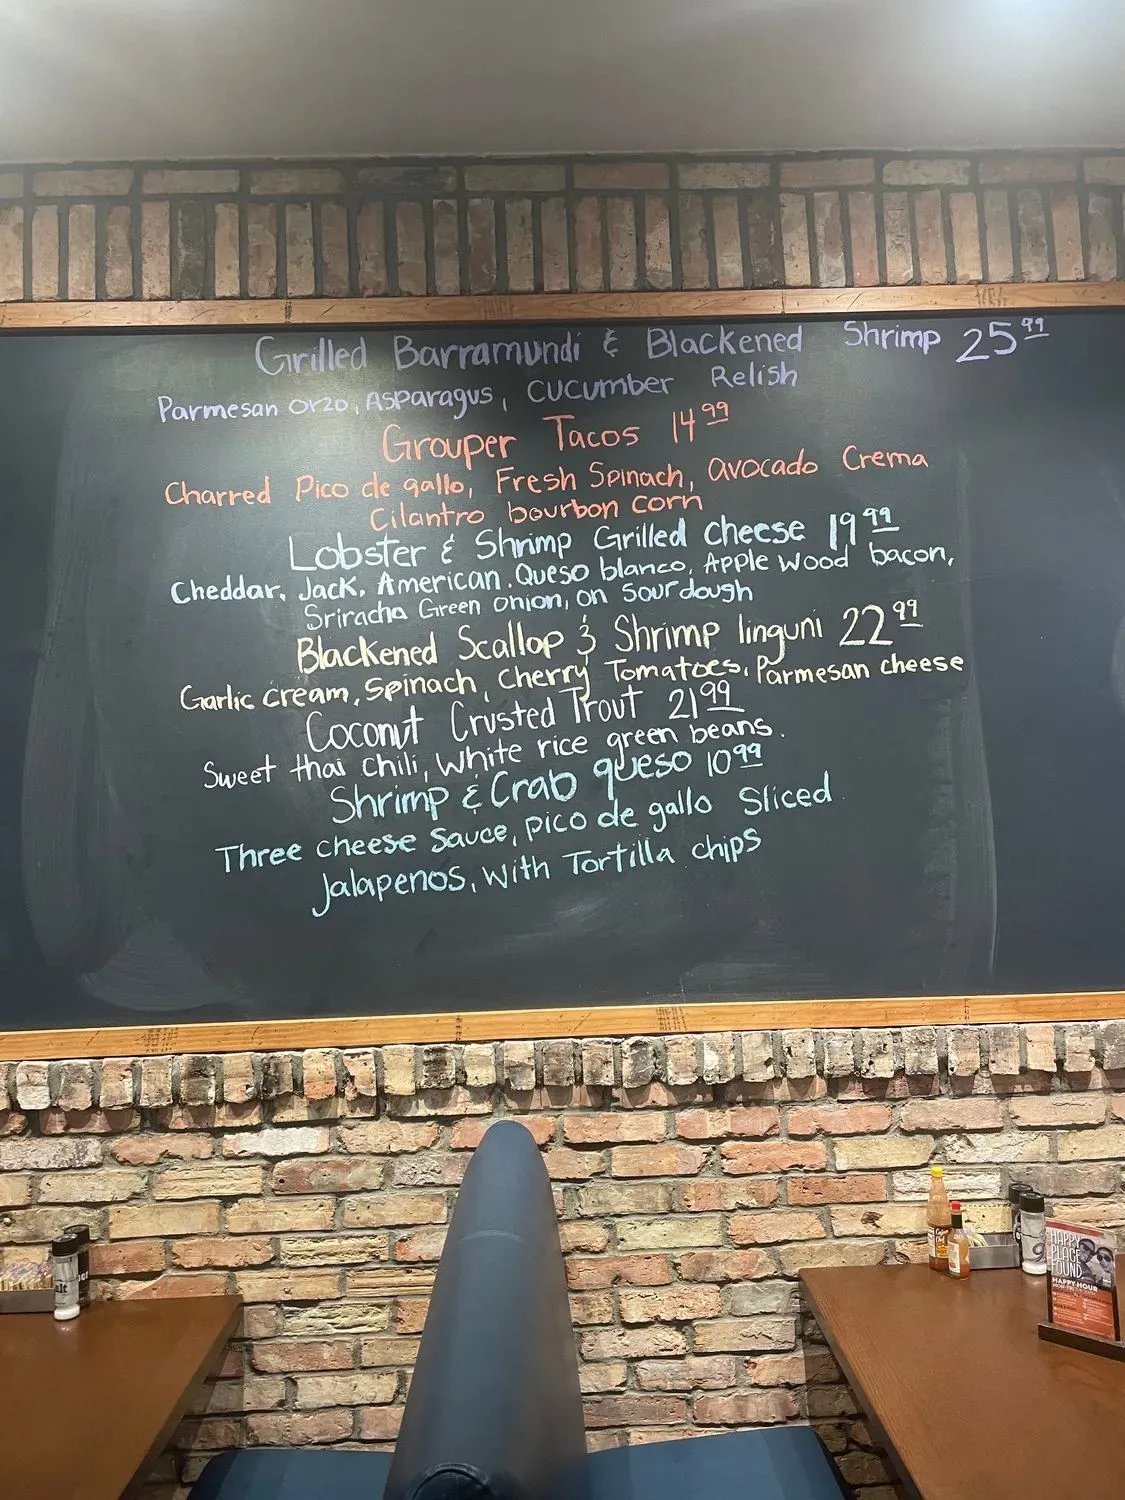 Grilled Barramundi & Blackened Shrimp 25 99
Parmesan orzo, Asparagus, CUCUMBER Relish
Grouper Tacos 14 99
Charred Pico de gallo, Fresh Spinach, avocado Crema
Cilantro bourbon corn
Lobster & Shrimp Grilled cheese 19 99
Cheddar, Jack, American, Queso blanco, Apple wood bacon,
Sriracha Green onion, on Sourdough
Blackened Scallop & Shrimp linguni 22 99
Garlic cream, Spinach, Cherry Tomatoes, Parmesan cheese
Coconut Crusted Trout 21 99
Sweet thai chili, White rice green beans.
Shrimp & Crab queso 10 99
Three cheese Sauce, pico de gallo Sliced
Jalapenos, with Tortilla chips
HAPPY
PLACE
FOUND.
HAPPY HOUR